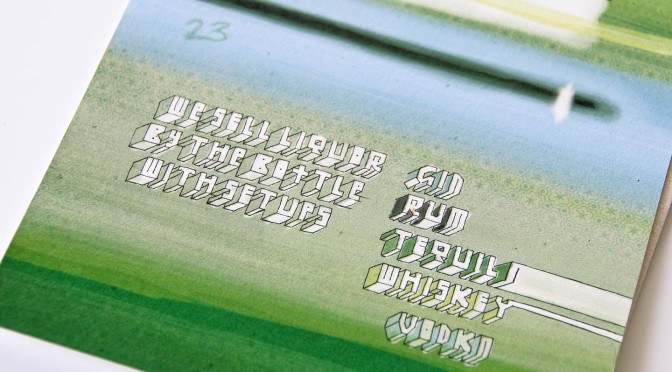 23
WE SELL LIQUOR
BY THE BOTTLE
WITH SETUPS
GIN
RUM
TEQUILA
WHISKEY
VODKA